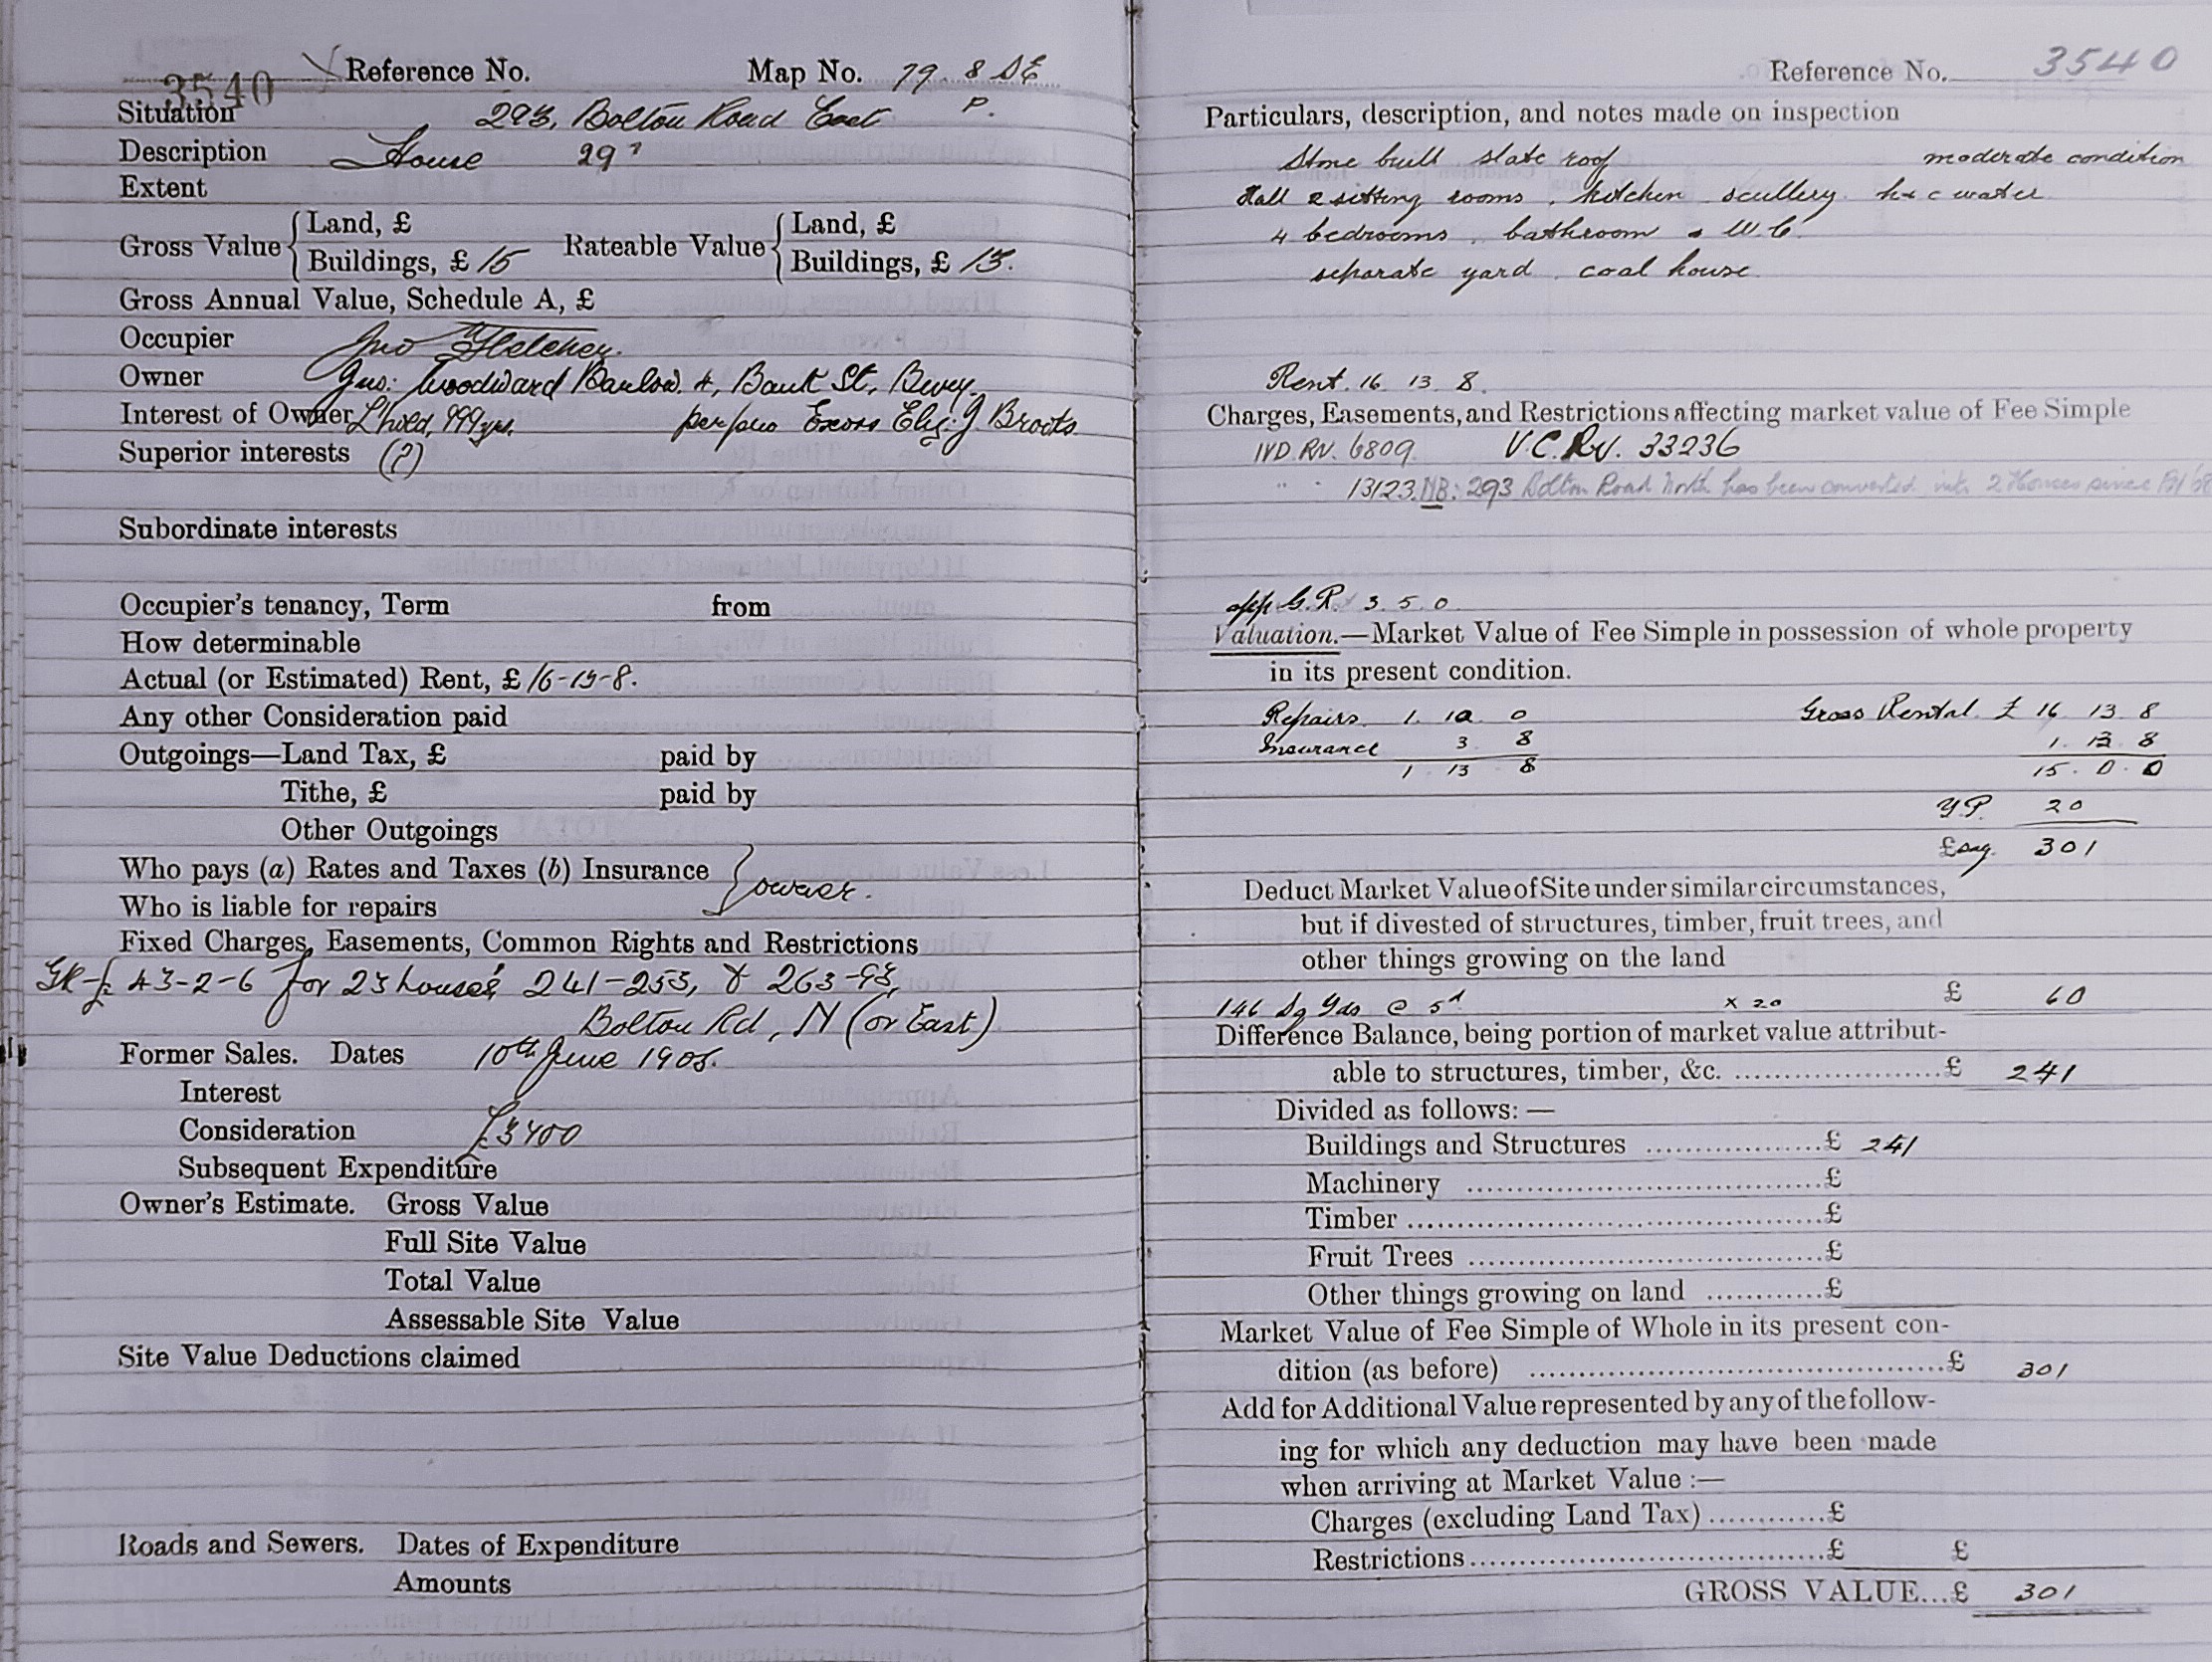 3540 Reference No. Map No. 79. 8 SE
Situation 293, Bolton Road East P.
Description House 29
Extent
Gross Value { Land, £ Rateable Value { Land, £
Buildings, £ 15 Buildings, £ 13.
Gross Annual Value, Schedule A, £
Occupier Jno Fletcher.
Owner Jas: Woodward Barlow. 4, Bank St, Bury.
Interest of Owner L'hold, 999 yrs. per pro Exors Eliz. J Brooks
Superior interests (?)
Subordinate interests
Occupier's tenancy, Term from
How determinable
Actual (or Estimated) Rent, £ 16-13-8.
Any other Consideration paid
Outgoings—Land Tax, £ paid by
Tithe, £ paid by
Other Outgoings
Who pays (a) Rates and Taxes (b) Insurance } owner.
Who is liable for repairs
Fixed Charges, Easements, Common Rights and Restrictions
GR £43-2-6 for 23 houses 241-253, & 263-93,
Bolton Rd, N (or East)
Former Sales. Dates 10th June 1905.
Interest
Consideration £3400
Subsequent Expenditure
Owner's Estimate. Gross Value
Full Site Value
Total Value
Assessable Site Value
Site Value Deductions claimed
Roads and Sewers. Dates of Expenditure
Amounts
Reference No. 3540
Particulars, description, and notes made on inspection
Stone built slate roof moderate condition
Hall 2 sitting rooms, kitchen scullery h & c water
4 bedrooms, bathroom & W.C.
separate yard. coal house.
Rent. 16 13 8.
Charges, Easements, and Restrictions affecting market value of Fee Simple
IVD. RN. 6809. V.C. RN. 33236
" " 13123. NB: 293 Bolton Road North has been converted into 2 Houses since
app G.R. 3. 5. 0.
Valuation.—Market Value of Fee Simple in possession of whole property
in its present condition.
Repairs. 1. 10 0 Gross Rental £ 16 13 8
Insurance 3 8 1. 13 8
1 13 8 15. 0. 0
Y.P. 20
£ say 301
Deduct Market Value of Site under similar circumstances,
but if divested of structures, timber, fruit trees, and
other things growing on the land
146 Sq Yds @ 5d x 20 £ 60
Difference Balance, being portion of market value attribut-
able to structures, timber, &c. £ 241
Divided as follows:—
Buildings and Structures £ 241
Machinery £
Timber £
Fruit Trees £
Other things growing on land £
Market Value of Fee Simple of Whole in its present con-
dition (as before) £ 301
Add for Additional Value represented by any of the follow-
ing for which any deduction may have been made
when arriving at Market Value:—
Charges (excluding Land Tax) £
Restrictions £ £
GROSS VALUE...£ 301